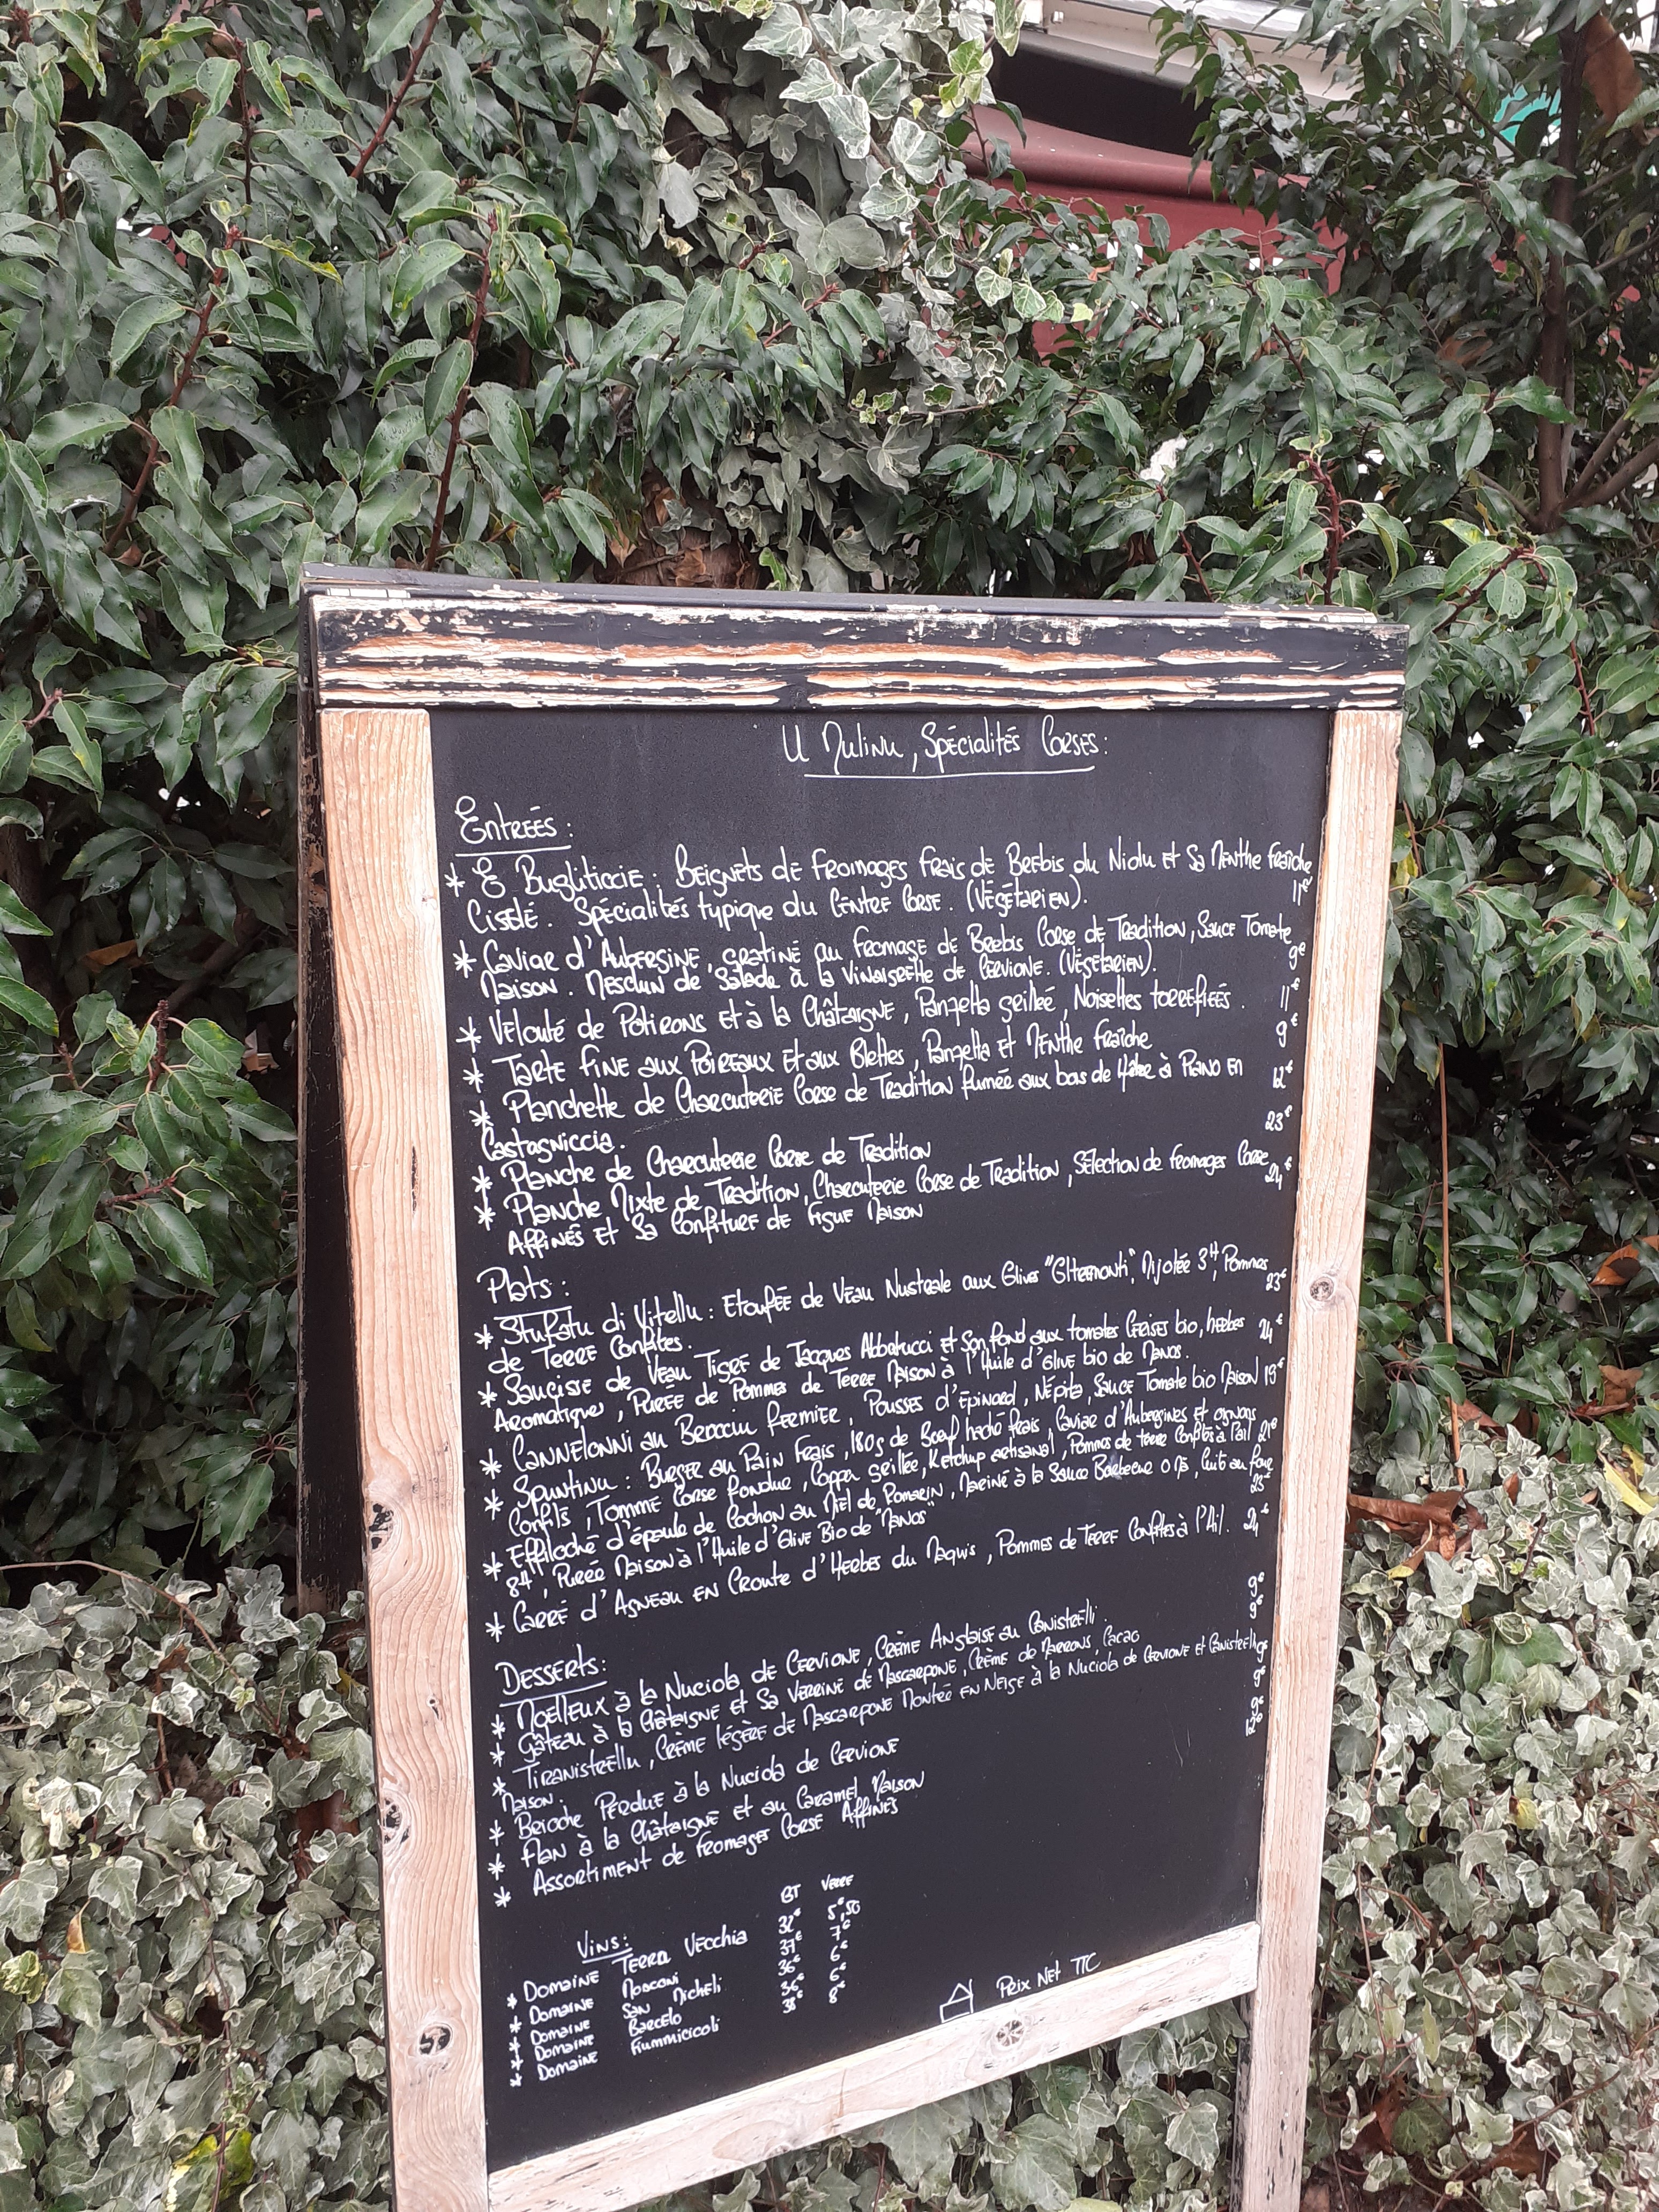 U Mulinu, Spécialités Corses:
Entrées:
* E Bugliticcie: Beignets de fromages frais de Brebis du Niolu et Sa Menthe fraîche
Ciselé. Spécialités typique du Centre Corse. (Végétarien). 11€
* Caviar d'Aubergine gratiné au fromage de Brebis Corse de Tradition, Sauce Tomate
Maison. Mesclun de Salade à la Vinaigrette de Cervione. (Végétarien). 9€
* Velouté de Potirons et à la Châtaigne, Panzetta grillée, Noisettes torrefiées. 11€
* Tarte fine aux Poireaux et aux Blettes, Panzetta et Menthe fraîche 9€
* Planchette de Charcuterie Corse de Tradition fumée aux bois de Hêtre à Piano en 12€
Castagniccia.
* Planche de Charcuterie Corse de Tradition 23€
* Planche Mixte de Tradition, Charcuterie Corse de Tradition, Sélection de fromages Corse
Affinés et Sa Confiture de Figue Maison 24€
Plats:
* Stufatu di Vitellu: Etouffée de Veau Nustrale aux Olives "Oltremonti", Mijotée 3H, Pommes
de Terre Confites. 23€
* Saucisse de Veau Tigré de Jacques Abbatucci et Son fond aux tomates Cerises bio, herbes 24€
Aromatiques, Purée de Pommes de Terre Maison à l'Huile d'Olive bio de Manos.
* Cannelonni au Brocciu fermier, Pousses d'Épinard, Népita, Sauce Tomate bio Maison 19€
* Spuntinu: Burger au Pain Frais, 180g de Boeuf haché frais, Caviar d'Aubergines et ognons
Confits, Tomme Corse fondue, Coppa grillée, Ketchup artisanal, Pommes de terre Confites à l'ail 21€
* Effiloché d'épaule de Cochon au Miel de Romarin, Mariné à la Sauce Barbecue, Cuit au four
8H, Purée Maison à l'Huile d'Olive Bio de "Manos" 23€
* Carré d'Agneau en Croute d'Herbes du Maquis, Pommes de Terre Confites à l'Ail. 24€
Desserts:
* Moelleux à la Nuciola de Cervione, Crème Anglaise au Canistrelli. 9€
* Gâteau à la Châtaigne et Sa Verrine de Mascarpone, Crème de Marrons, Cacao 9€
* Tiranistrellu, Crème légère de Mascarpone Montée en Neige à la Nuciola de Cervione et Canistrelli 9€
Maison.
* Brioche Perdue à la Nuciola de Cervione 9€
* Flan à la Châtaigne et au Caramel Maison 9€
* Assortiment de fromages Corse Affinés 12€
Vins: BT Verre
* Domaine Terra Vecchia 32€ 5€,50
* Domaine Morconi 37€ 7€
* Domaine San Micheli 35€ 6€
* Domaine Barcelo 36€ 6€
* Domaine Fiummicicoli 38€ 8€
Prix Net TTC